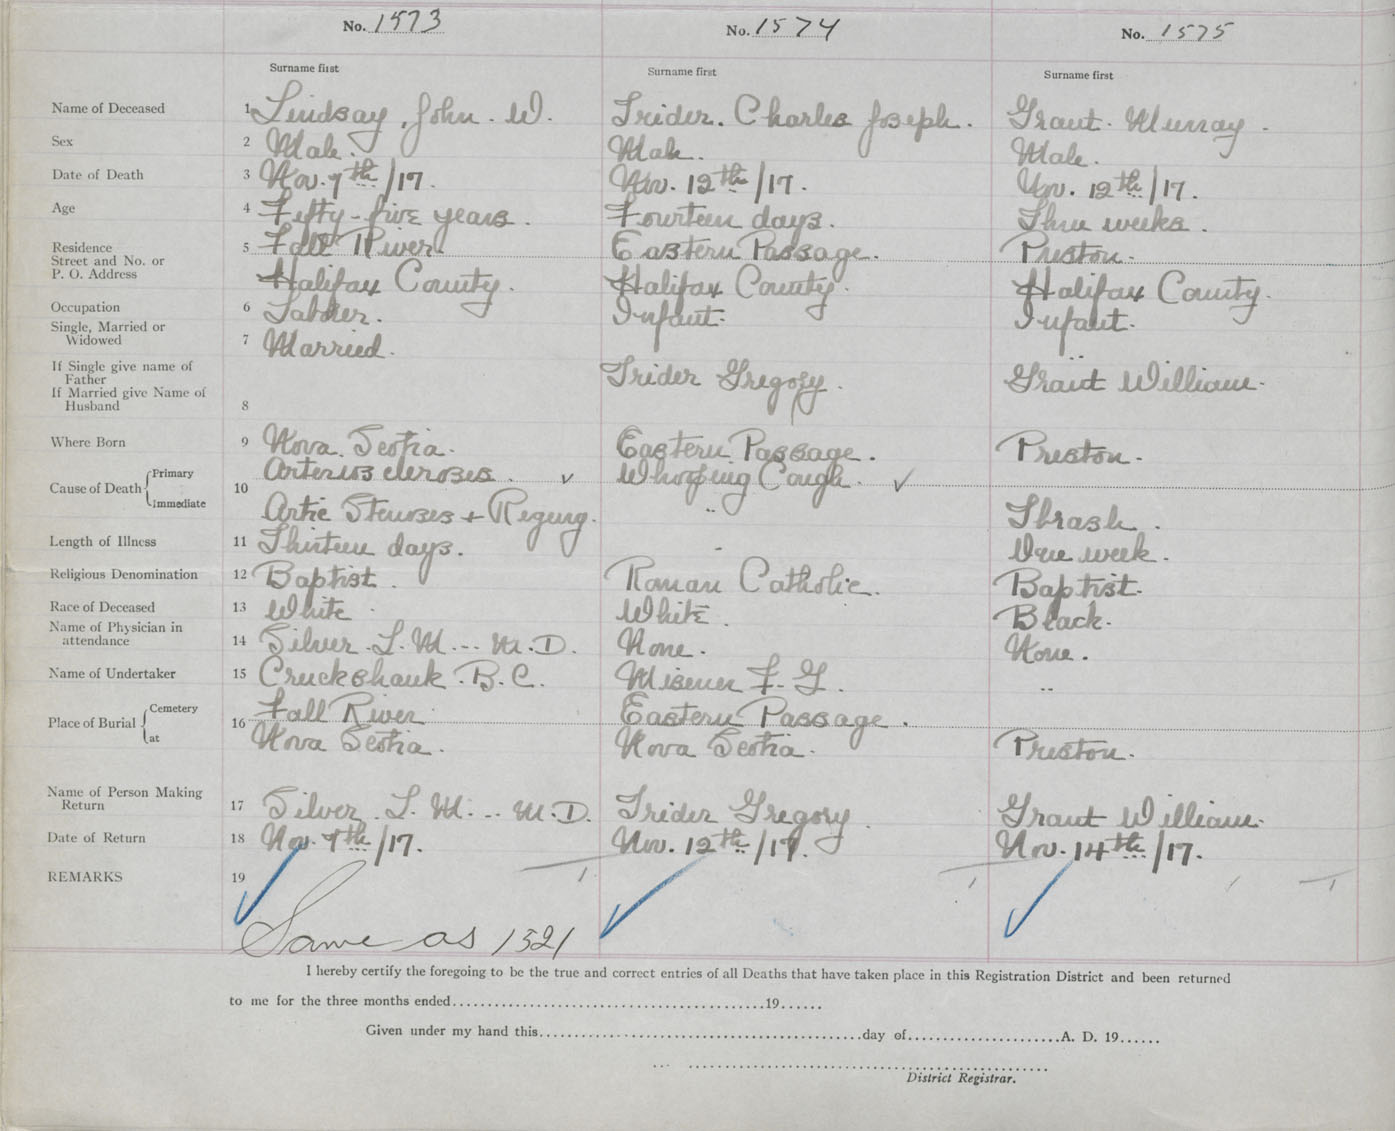 No. 1573 No. 1574 No. 1575
Surname first Surname first Surname first
Name of Deceased 1 Lindsay, John. W. Trider. Charles Joseph. Grant. Murray.
Sex 2 Male. Male. Male.
Date of Death 3 Nov. 7th/17. Nov. 12th/17. Nov. 12th/17.
Age 4 Fifty-five years. Fourteen days. Three weeks.
Residence 5 Fall River Eastern Passage. Preston.
Street and No. or
P. O. Address Halifax County. Halifax County. Halifax County.
Occupation 6 Infant. Infant.
Single, Married or
Widowed 7 Married. "
If Single give name of
Father Trider Gregory. Grant William.
If Married give Name of
Husband 8
Where Born 9 Nova Scotia. Eastern Passage. Preston.
Cause of Death Primary Whooping Cough.
10
Immediate " Thrash.
Length of Illness 11 Thirteen days. - One week.
Religious Denomination 12 Baptist. Roman Catholic. Baptist.
Race of Deceased 13 White White. Black.
Name of Physician in
attendance 14 Silver. L. M. -- M. D. None. None.
Name of Undertaker 15 Cruckshank. B. C. Misener F. G. "
Place of Burial Cemetery 16 Fall River Eastern Passage.
at Nova Scotia. Nova Scotia. Preston.
Name of Person Making
Return 17 Silver. L. M. -- M. D. Trider Gregory. Grant William.
Date of Return 18 Nov. 9th/17. Nov. 12th/17. Nov. 14th/17.
REMARKS 19
Same as 1521
I hereby certify the foregoing to be the true and correct entries of all Deaths that have taken place in this Registration District and been returned
to me for the three months ended........19......
Given under my hand this........day of........A. D. 19......
District Registrar.